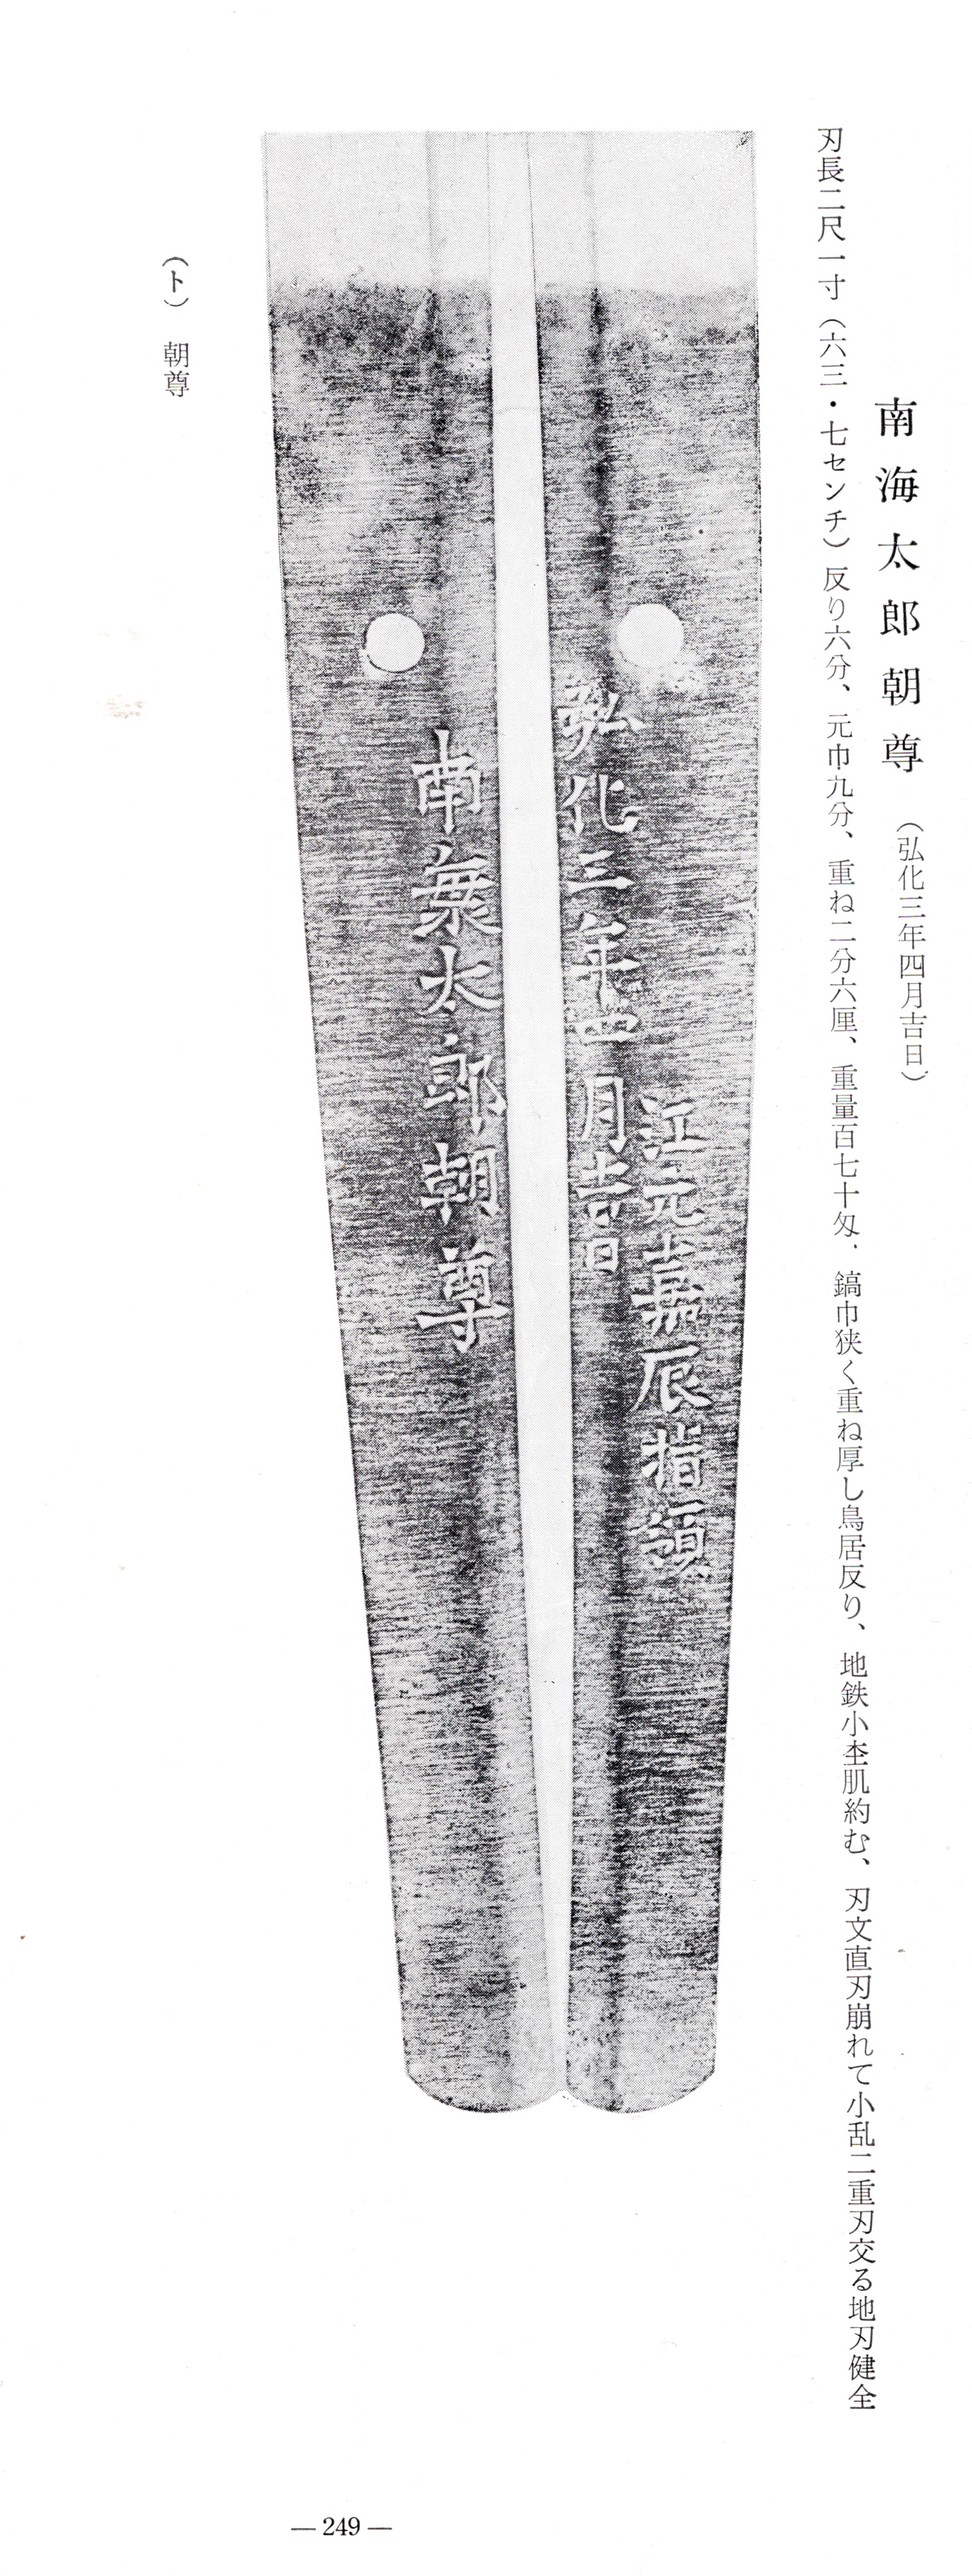 南海太郎朝尊 （弘化三年四月吉日）
刃長二尺一寸（六三・七センチ）反り六分、元巾九分、重ね二分六厘、重量百七十匁．鎬巾狭く重ね厚し鳥居反り、地鉄小杢肌約む、刃文直刃崩れて小乱二重刃交る地刃健全
江元嘉辰指
弘化三年四月吉日
南海太郎朝尊
（ト） 朝尊
— 249 —